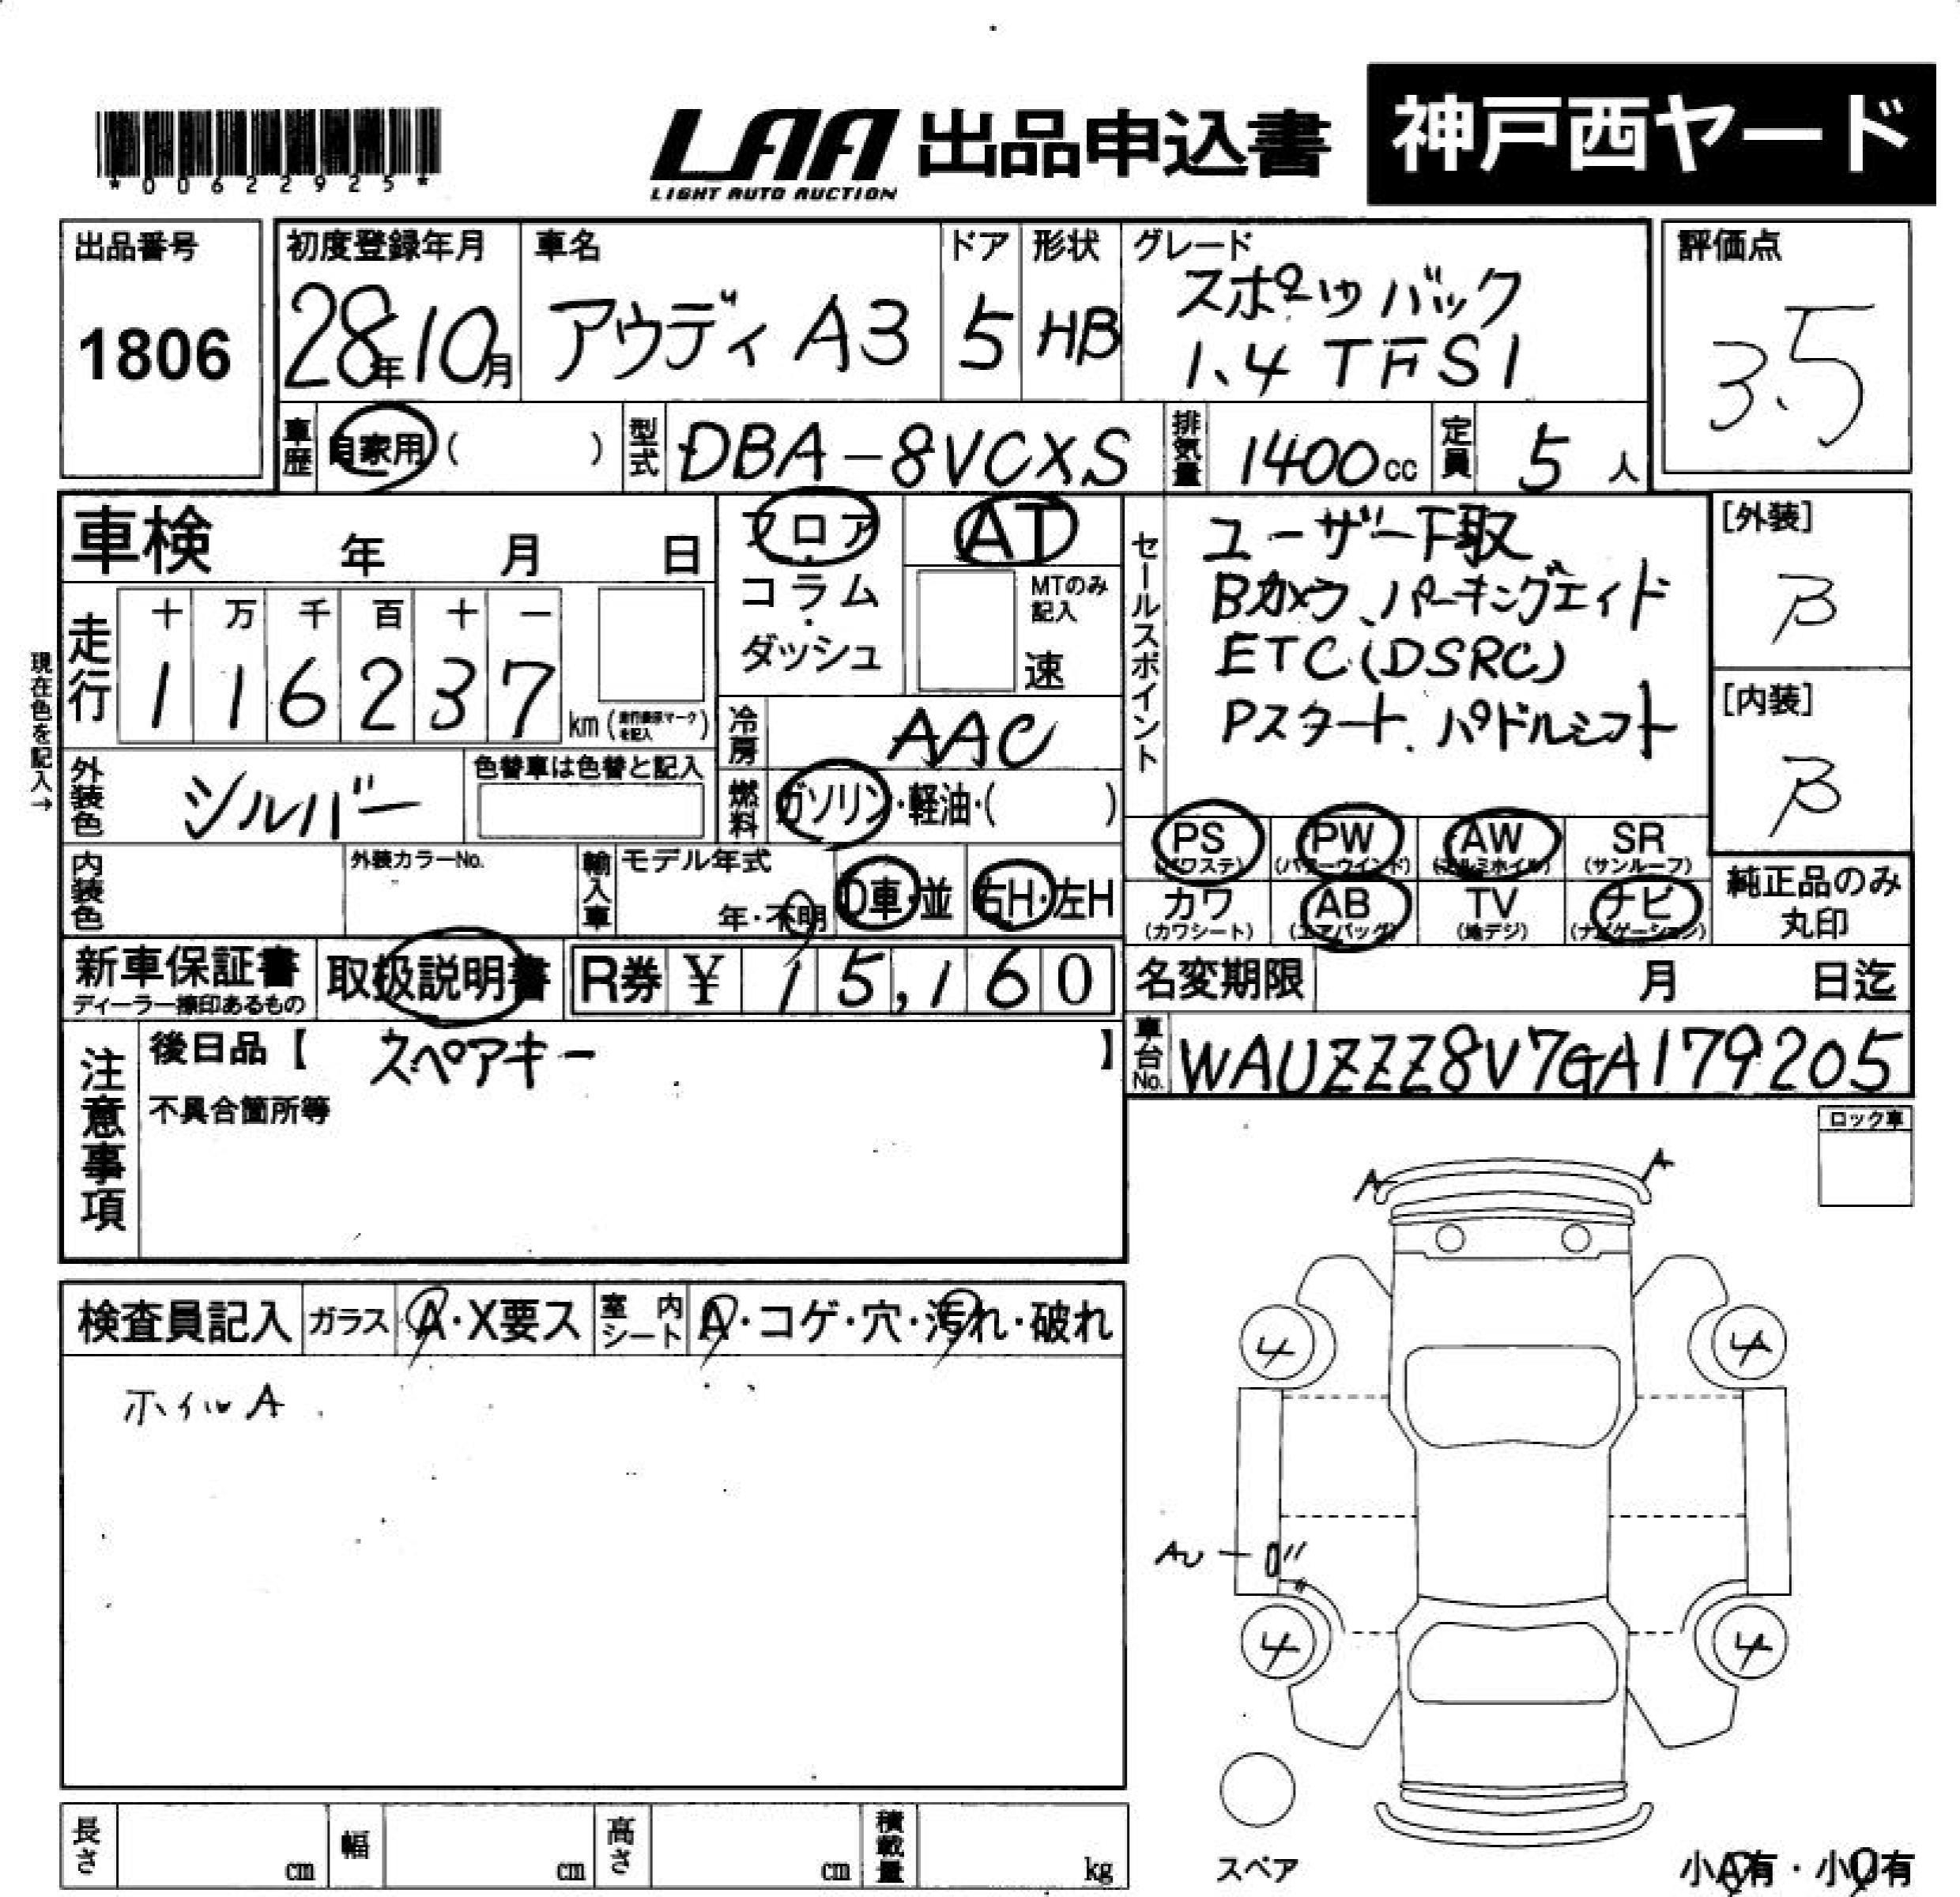 *00622925*
LAA 出品申込書 神戸西ヤード
LIGHT AUTO AUCTION
出品番号
1806
初度登録年月
28年10月
車名
アウディ A3
ドア
5
形状
HB
グレード
スポーツバック
1.4 TFSI
評価点
3.5
車歴 自家用 ( )
型式 DBA-8VCXS
排気量 1400cc
定員 5人
車検 年 月 日
フロア・コラム・ダッシュ
AT
MTのみ記入
速
現在色を記入→
走行
十 万 千 百 十 一
1 1 6 2 3 7
km (走行表示マークを記入)
冷房 AAC
燃料 ガソリン・軽油・( )
外装色 シルバー
色替車は色替と記入
内装色
外装カラーNo.
輸入車
モデル年式
年・不明
D車・並
右H・左H
セールスポイント
ユーザー下取
Bカメラ、パーキングエイド
ETC(DSRC)
Pスタート、パドルシフト
[外装]
B
[内装]
B
PS (パワステ)
PW (パワーウインド)
AW (アルミホイル)
SR (サンルーフ)
カワ (カワシート)
AB (エアバッグ)
TV (地デジ)
ナビ (ナビゲーション)
純正品のみ丸印
新車保証書
ディーラー捺印あるもの
取扱説明書
R券 ¥ 15,160
名変期限 月 日迄
車台No. WAUZZZ8V7GA179205
注意事項
後日品【 スペアキー 】
不具合箇所等
ロック車
検査員記入
ガラス A・X要ス
室内シート A・コゲ・穴・汚れ・破れ
ホイルA
A
A
4
4
AU
4
4
スペア
小A有・小U有
長さ cm
幅 cm
高さ cm
積載量 kg